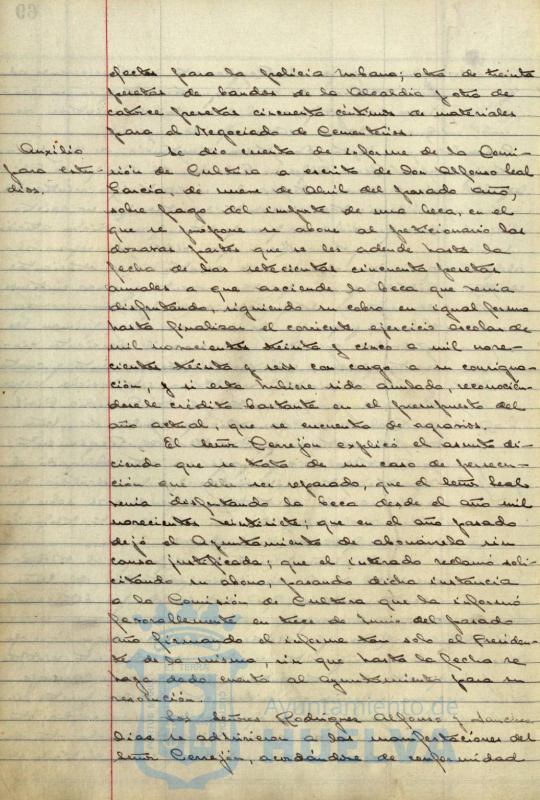 69
efectos para la policia urbana; otro de treinta
pesetas de bandos de la Alcaldía y otro de
catorce pesetas cincuenta céntimos de materiales
para el Negociado de Cementerios.
Auxilio
para estu-
dios.
Se dio cuenta de informe de la Comi-
sión de Cultura a escrito de Don Alfonso Leal
García, de nueve de Abril del pasado año,
sobre pago del importe de una beca, en el
que se propone se abone al peticionario las
dozavas partes que se les adende hasta la
fecha de las setecientas cincuenta pesetas
anuales a que asciende la beca que venia
disfrutando, siguiendo su cobro en igual forma
hasta finalizar el corriente ejercicio escolar de
mil novecientos treinta y cinco a mil nove-
cientos treinta y seis con cargo a su consigna-
ción, y si esta hubiere sido anulada, reconocién-
dosele crédito bastante en el presupuesto del
año actual, que se encuentra de agravios.
El señor Cerrejón explicó el asunto di-
ciendo que se trata de un caso de persecu-
ción que debe ser reparado, que el señor Leal
venia disfrutando la beca desde el año mil
novecientos veintisiete; que en el año pasado
dejó el Ayuntamiento de abonársela sin
causa justificada; que el interado reclamó soli-
citando su abono, pasando dicha instancia
a la Comisión de Cultura que la informó
favorablemente en trece de Junio del pasado
año firmando el informe tan solo el Presiden-
te de la misma, sin que hasta la fecha se
haya dado cuenta al ayuntamiento para su
resolución.
Los Señores Rodríguez Alfonso y Sanchez
Dias se adhirieron a las manifestaciones del
señor Cerrejón, acordándose de conformidad
Ayuntamiento de
HUELVA